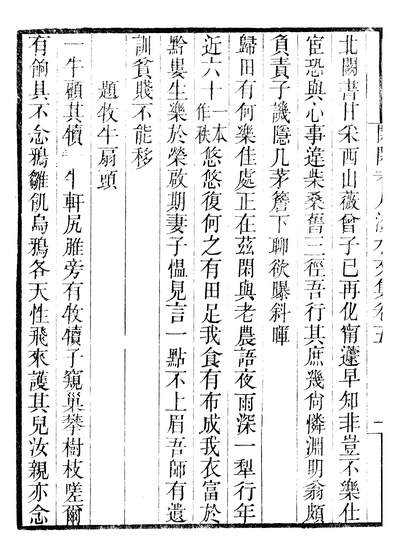 老人滏水文集卷五 一
北闕書甘采西山薇曾子已再化甯蘧早知非豈不樂仕
宦恐與心事違柴桑舊三徑吾行其庶幾尙憐淵明翁頗
負責子譏隱几茅簷下聊欲曝斜暉
歸田有何樂佳處正在茲閑與老農語夜雨深一犁行年
近六十一本作秩悠悠復何之有田足我食有布成我衣富於
黔婁生樂於榮啟期妻子慍見言一點不上眉吾師有遺
訓貧賤不能移
題牧牛扇頭
一牛顧其犢牛軒尻脽旁有牧犢子窺巢攀樹枝嗟爾
有餉具不念鴉雛飢烏鴉各天性飛來護其兒汝親亦念